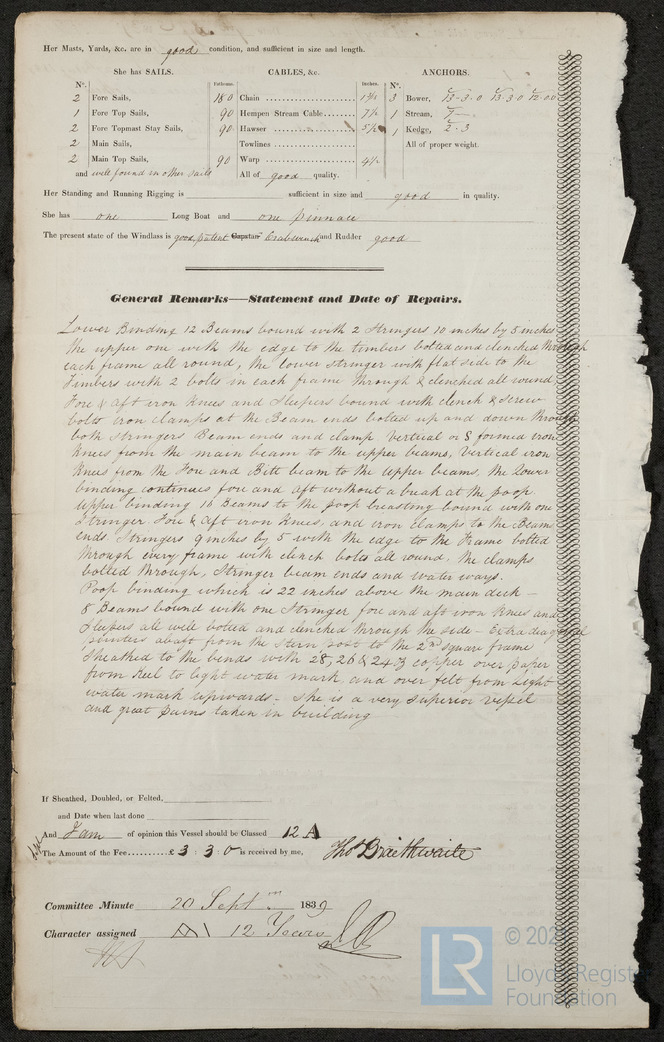 Her Masts, Yards, &c. are in good condition, and sufficient in size and length.
She has SAILS. CABLES, &c. ANCHORS.
N°. Fathoms. Inches. N°.
2 Fore Sails, 180 Chain 3 Bower, 13-3-0 13-3-0
1 Fore Top Sails, 90 Hempen Stream Cable 7½ 1 Stream, 7
2 Fore Topmast Stay Sails, 90 Hawser 5½ 1 Kedge, 2-3
2 Main Sails, Towlines All of proper weight.
2 Main Top Sails, 90 Warp 4½
and well found in other sails All of good quality.
Her Standing and Running Rigging is sufficient in size and good in quality.
She has one Long Boat and one pinnace
The present state of the Windlass is good, patent Capstan Crabwinch and Rudder good
General Remarks—Statement and Date of Repairs.
Lower Binding 12 Beams bound with 2 Stringers 10 inches by 5 inches
the upper one with the edge to the timbers bolted and clenched through
each frame all round, the lower stringer with flat side to the
Timbers with 2 bolts in each frame through & clenched all round
Fore & aft iron knees and Sleepers bound with clench & screw
bolts iron clamps at the Beam ends bolted up and down through
both stringers Beam ends and clamp Vertical or S formed iron
knees from the main beam to the upper beams, Vertical iron
knees from the Fore and Bitt beam to the upper beams, the lower
binding continues fore and aft without a break at the poop.
Upper binding 16 Beams to the poop breasting bound with one
Stringer. Fore & aft iron knees, and iron clamps to the Beam
ends. Stringers 9 inches by 5 with the edge to the Frame bolted
through every frame with clench bolts all round. the clamps
bolted through, Stringer beam ends and water ways.
Poop binding which is 22 inches above the main deck —
8 Beams bound with one Stringer fore and aft iron knees and
Sleepers all well bolted and clenched through the side - Extra diagonal
pointers abaft from the stern post to the 2nd square frame
Sheathed to the bends with 28, 26 & 24 copper over paper
from keel to light water mark and over felt from Light
water mark upwards - She is a very superior vessel
and great pains taken in building
If Sheathed, Doubled, or Felted,
and Date when last done
And I am of opinion this Vessel should be Classed 12 A
The Amount of the Fee £ 3 : 3 : 0 is received by me, Thos Braithwaite
Committee Minute 20 Septr 1839
Character assigned A 12 Years
LR © 202
Lloyd's Regist
Foundation